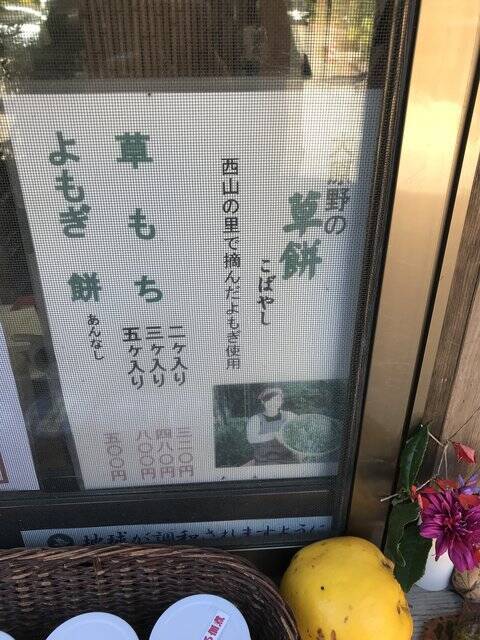 大原野の
草餅
こばやし
西山の里で摘んだよもぎ使用
草もち
二ケ入り 三三〇円
三ケ入り 四八〇円
五ケ入り 八〇〇円
よもぎ餅
あんなし 五〇〇円
地球が調和されますように